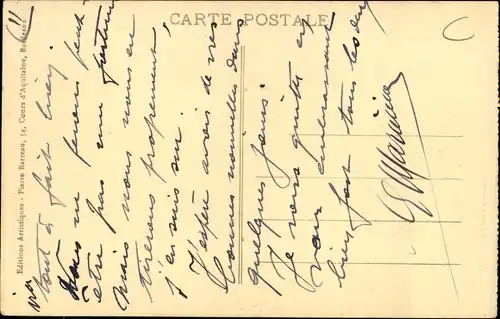 CARTE POSTALE
Editions Artistiques - Pierre Barreau, 54, Cours d'Aquitaine, Bordeaux
tout à fait bien.
Nous ne ferons peut-
être pas une fortune
mais nous nous en
tirerons proprement,
j'en suis sur.
J'espère avoir de vos
bonnes nouvelles dans
quelques jours.
Je vous quitte en
vous embrassant
bien fort tous les deux